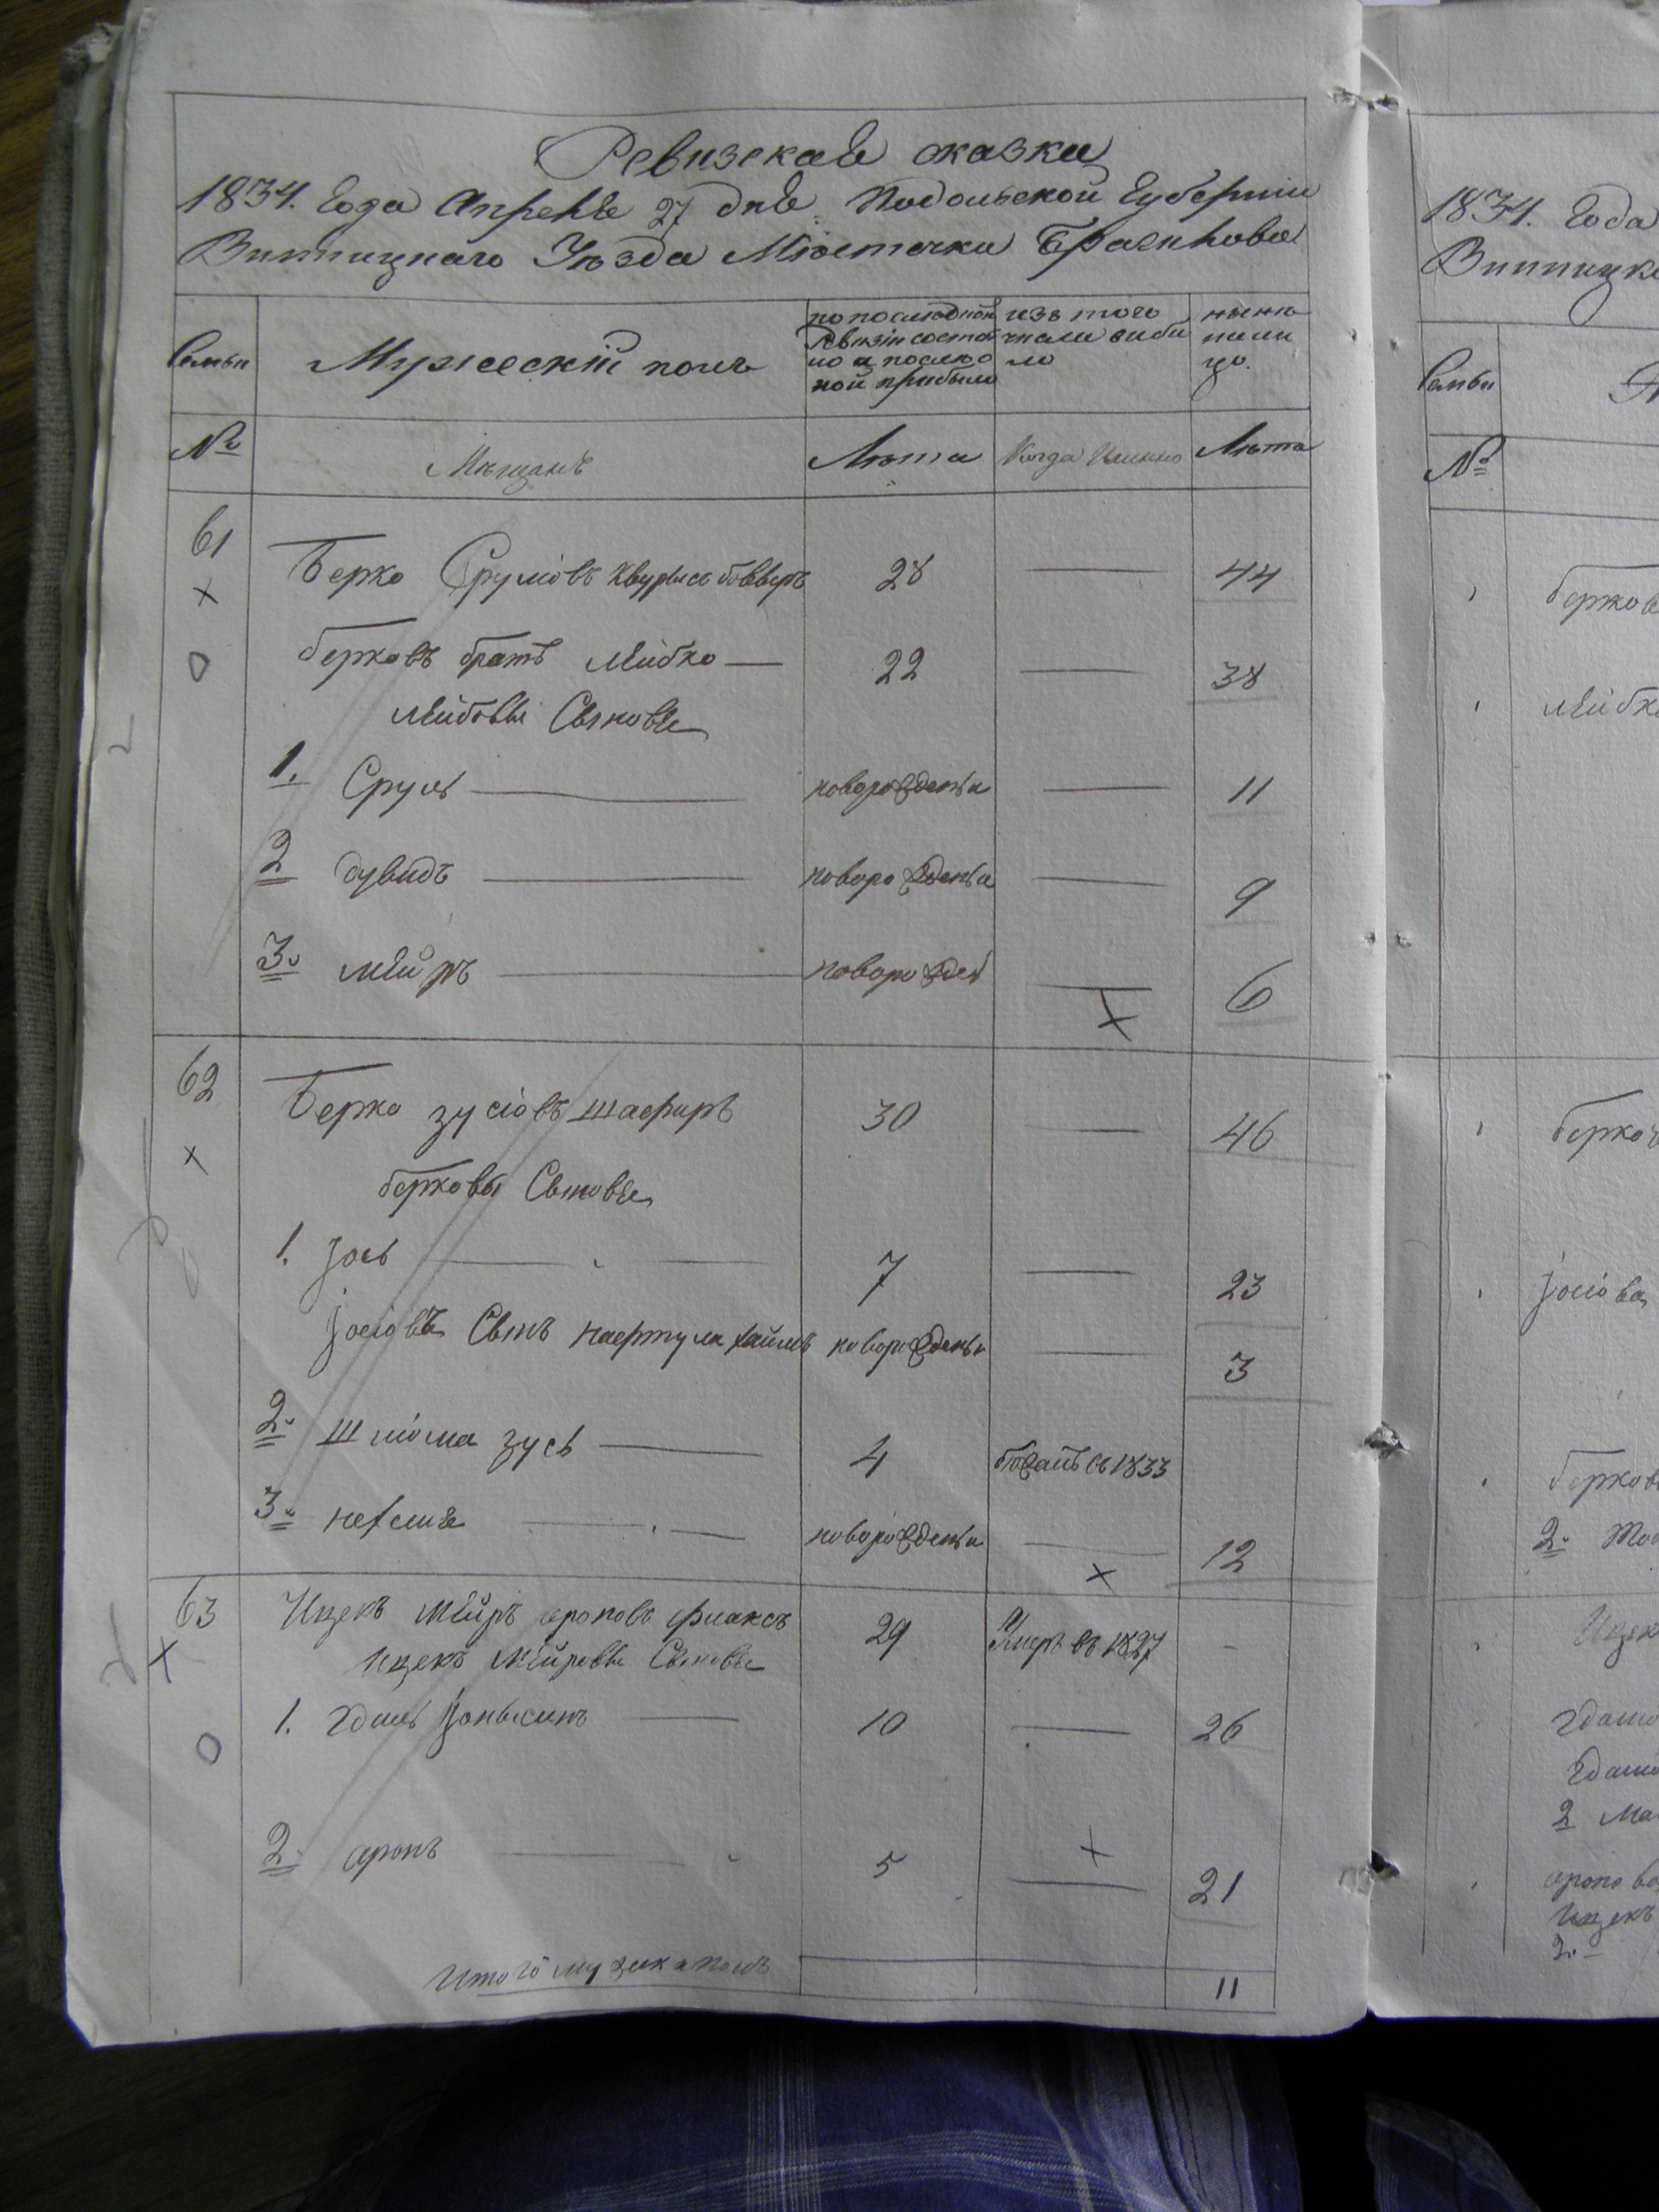 Ревизская сказка
1834. Года Апреля 27 дня Подольской Губернии
Винницкаго Уезда Местечка Браилова
Семьи
Мужескій полъ
по последней
Ревизіи состоя
ло и после о
ной прибыло
изъ того
числа выбы
ло
ныне
на ли
цо.
№
Мещанъ
Лета
Когда Именно
Лета
61
Берко Срулiовъ
28
44
берковъ братъ Лейбко
22
38
Лейбовы Сыновья
1. Сруль
новорожденъи
11
2 дувидъ
новорожденъи
9
3. мейръ
новорожден
6
62
Берко зусіовъ шафиръ
30
46
берковы Сыновья
1. Іось
7
23
Іосіовъ Сынъ нафтула хаимъ
новорожденъи
3
2. шліома зусь
4
бежалъ съ 1833
3. нехемія
новорожденъи
12
63
Ицекъ Мейръ ароновъ флаксъ
29
Умеръ въ 1827
Ицекъ Мейровы Сыновья
1. Гдаль
10
26
2. аронъ
5
21
Итого мужеска полъ
11
1834. Года
Винницк
Семьи
№
берков
Лейбк
берков
Іосіова
берков
2.
Ицек
Гдалiо
Гдалiо
2 Ма
аронова
Ицекъ